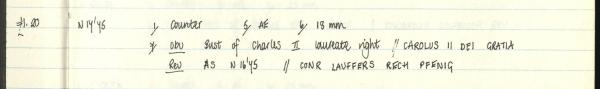 N14'45 1, Counter 5, AE 6, 18 mm
7, Obv Bust of Charles II laureate right // CAROLUS II DEI GRATIA
Rev AS N16'45 // CONR LAUFFERS RECH PFENIG